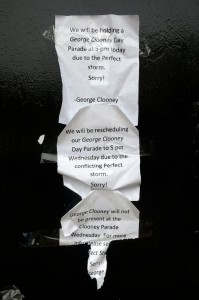 We will be holding a
George Clooney Day
Parade at 5 pm today
due to the Perfect
storm.
Sorry!
-George Clooney
We will be rescheduling
our George Clooney
Day Parade to 5 pm
Wednesday due to the
conflicting Perfect
storm.
Sorry!
George Clooney will not
be present at the
Clooney Parade
Wednesday. For more
please see
Sorry
George